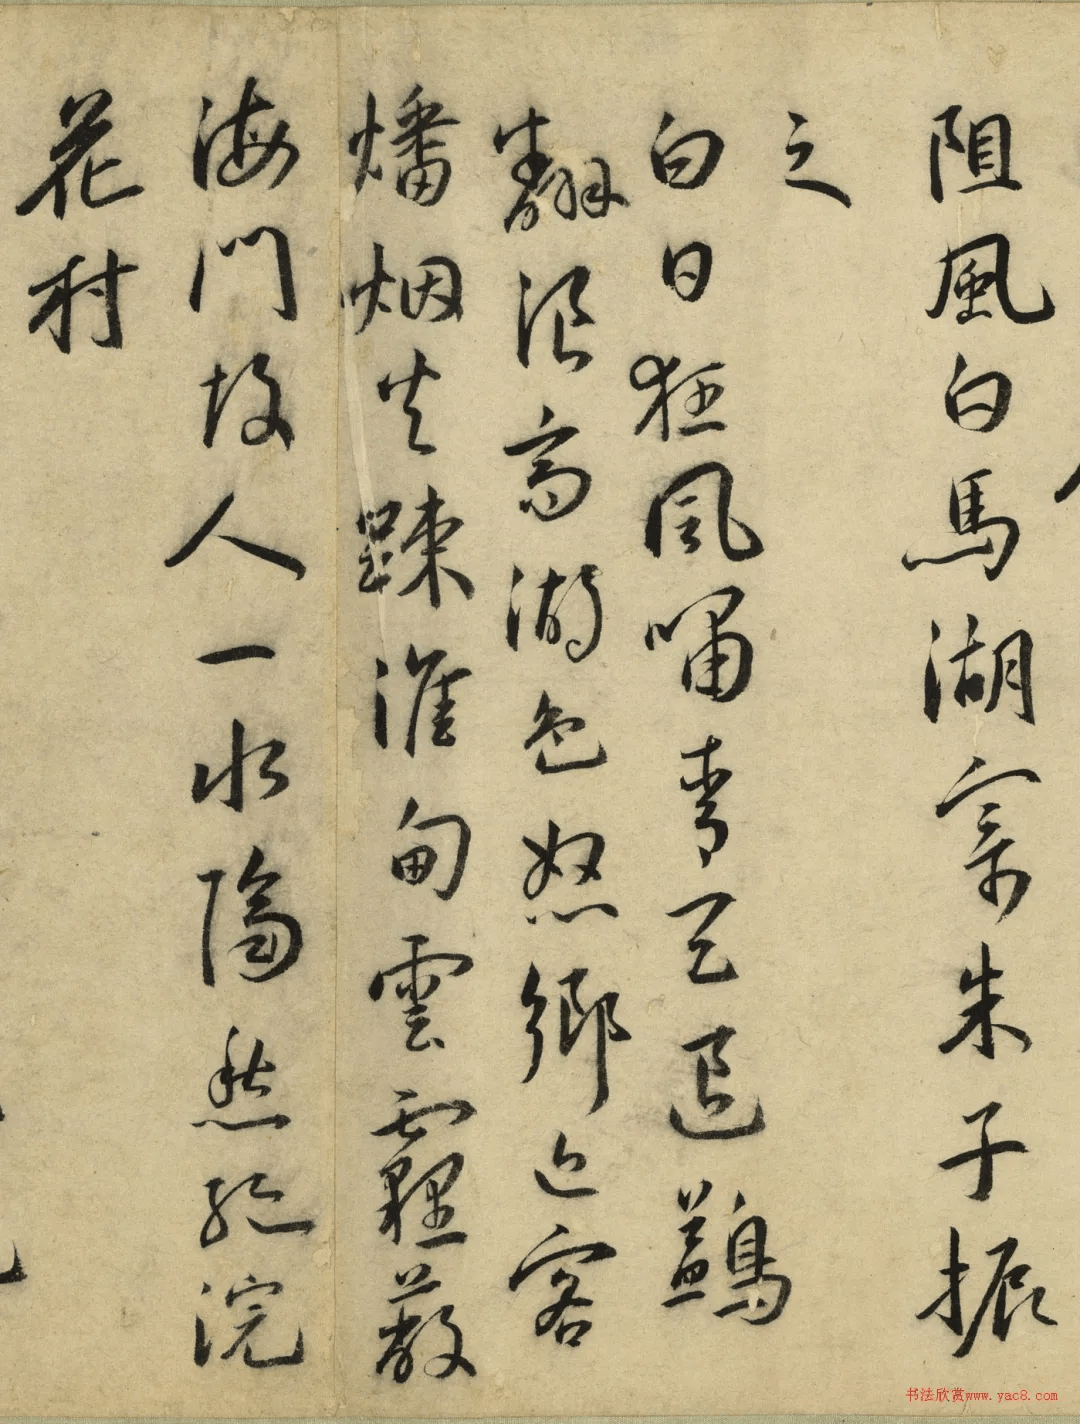 阻風白馬湖寄朱子振
之
白日狂風嘯青天退鷁
翻浪高湖色怒鄉近客
燔烟火疎淮甸雲霾蔽
海門故人一水隔愁絕浣
花村
书法欣赏www.yac8.com